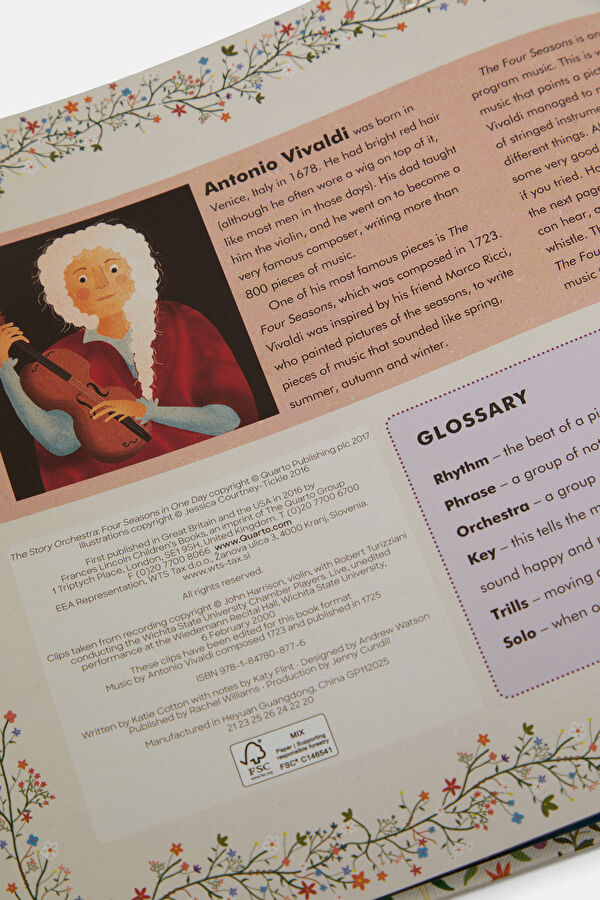 Antonio Vivaldi was born in
Venice, Italy in 1678. He had bright red hair
(although he often wore a wig on top of it,
like most men in those days). His dad taught
him the violin, and he went on to become a
very famous composer, writing more than
800 pieces of music.
One of his most famous pieces is The
Four Seasons, which was composed in 1723.
Vivaldi was inspired by his friend Marco Ricci,
who painted pictures of the seasons, to write
pieces of music that sounded like spring,
summer, autumn and winter.
The Four Seasons is an
program music. This is
music that paints a pic
Vivaldi managed to
of stringed instrume
different things. Al
some very good
if you tried. Ha
the next page
can hear, a
whistle. Th
The Fou
music
GLOSSARY
Rhythm – the beat of a pi
Phrase – a group of not
Orchestra – a group
Key – this tells the m
sound happy and
Trills – moving
Solo – when o
The Story Orchestra: Four Seasons in One Day copyright © Quarto Publishing plc 2017
Illustrations copyright © Jessica Courtney-Tickle 2016
First published in Great Britain and the USA in 2016 by
Frances Lincoln Children's Books, an imprint of The Quarto Group
1 Triptych Place, London, SE1 9SH, United Kingdom. T (0)20 7700 6700
F (0)20 7700 8066 www.Quarto.com
EEA Representation, WTS Tax d.o.o., Žanova ulica 3, 4000 Kranj, Slovenia
www.wts-tax.si
All rights reserved.
Clips taken from recording copyright © John Harrison, violin, with Robert Turizziani
conducting the Wichita State University Chamber Players. Live, unedited
performance at the Wiedemann Recital Hall, Wichita State University,
6 February 2000
These clips have been edited for this book format
Music by Antonio Vivaldi composed 1723 and published in 1725
ISBN 978-1-84780-877-6
Written by Katie Cotton with notes by Katy Flint · Designed by Andrew Watson
Published by Rachel Williams · Production by Jenny Cundill
Manufactured in Heyuan Guangdong, China GP112025
21 23 25 26 24 22 20
FSC
www.fsc.org
MIX
Paper | Supporting
responsible forestry
FSC® C146541